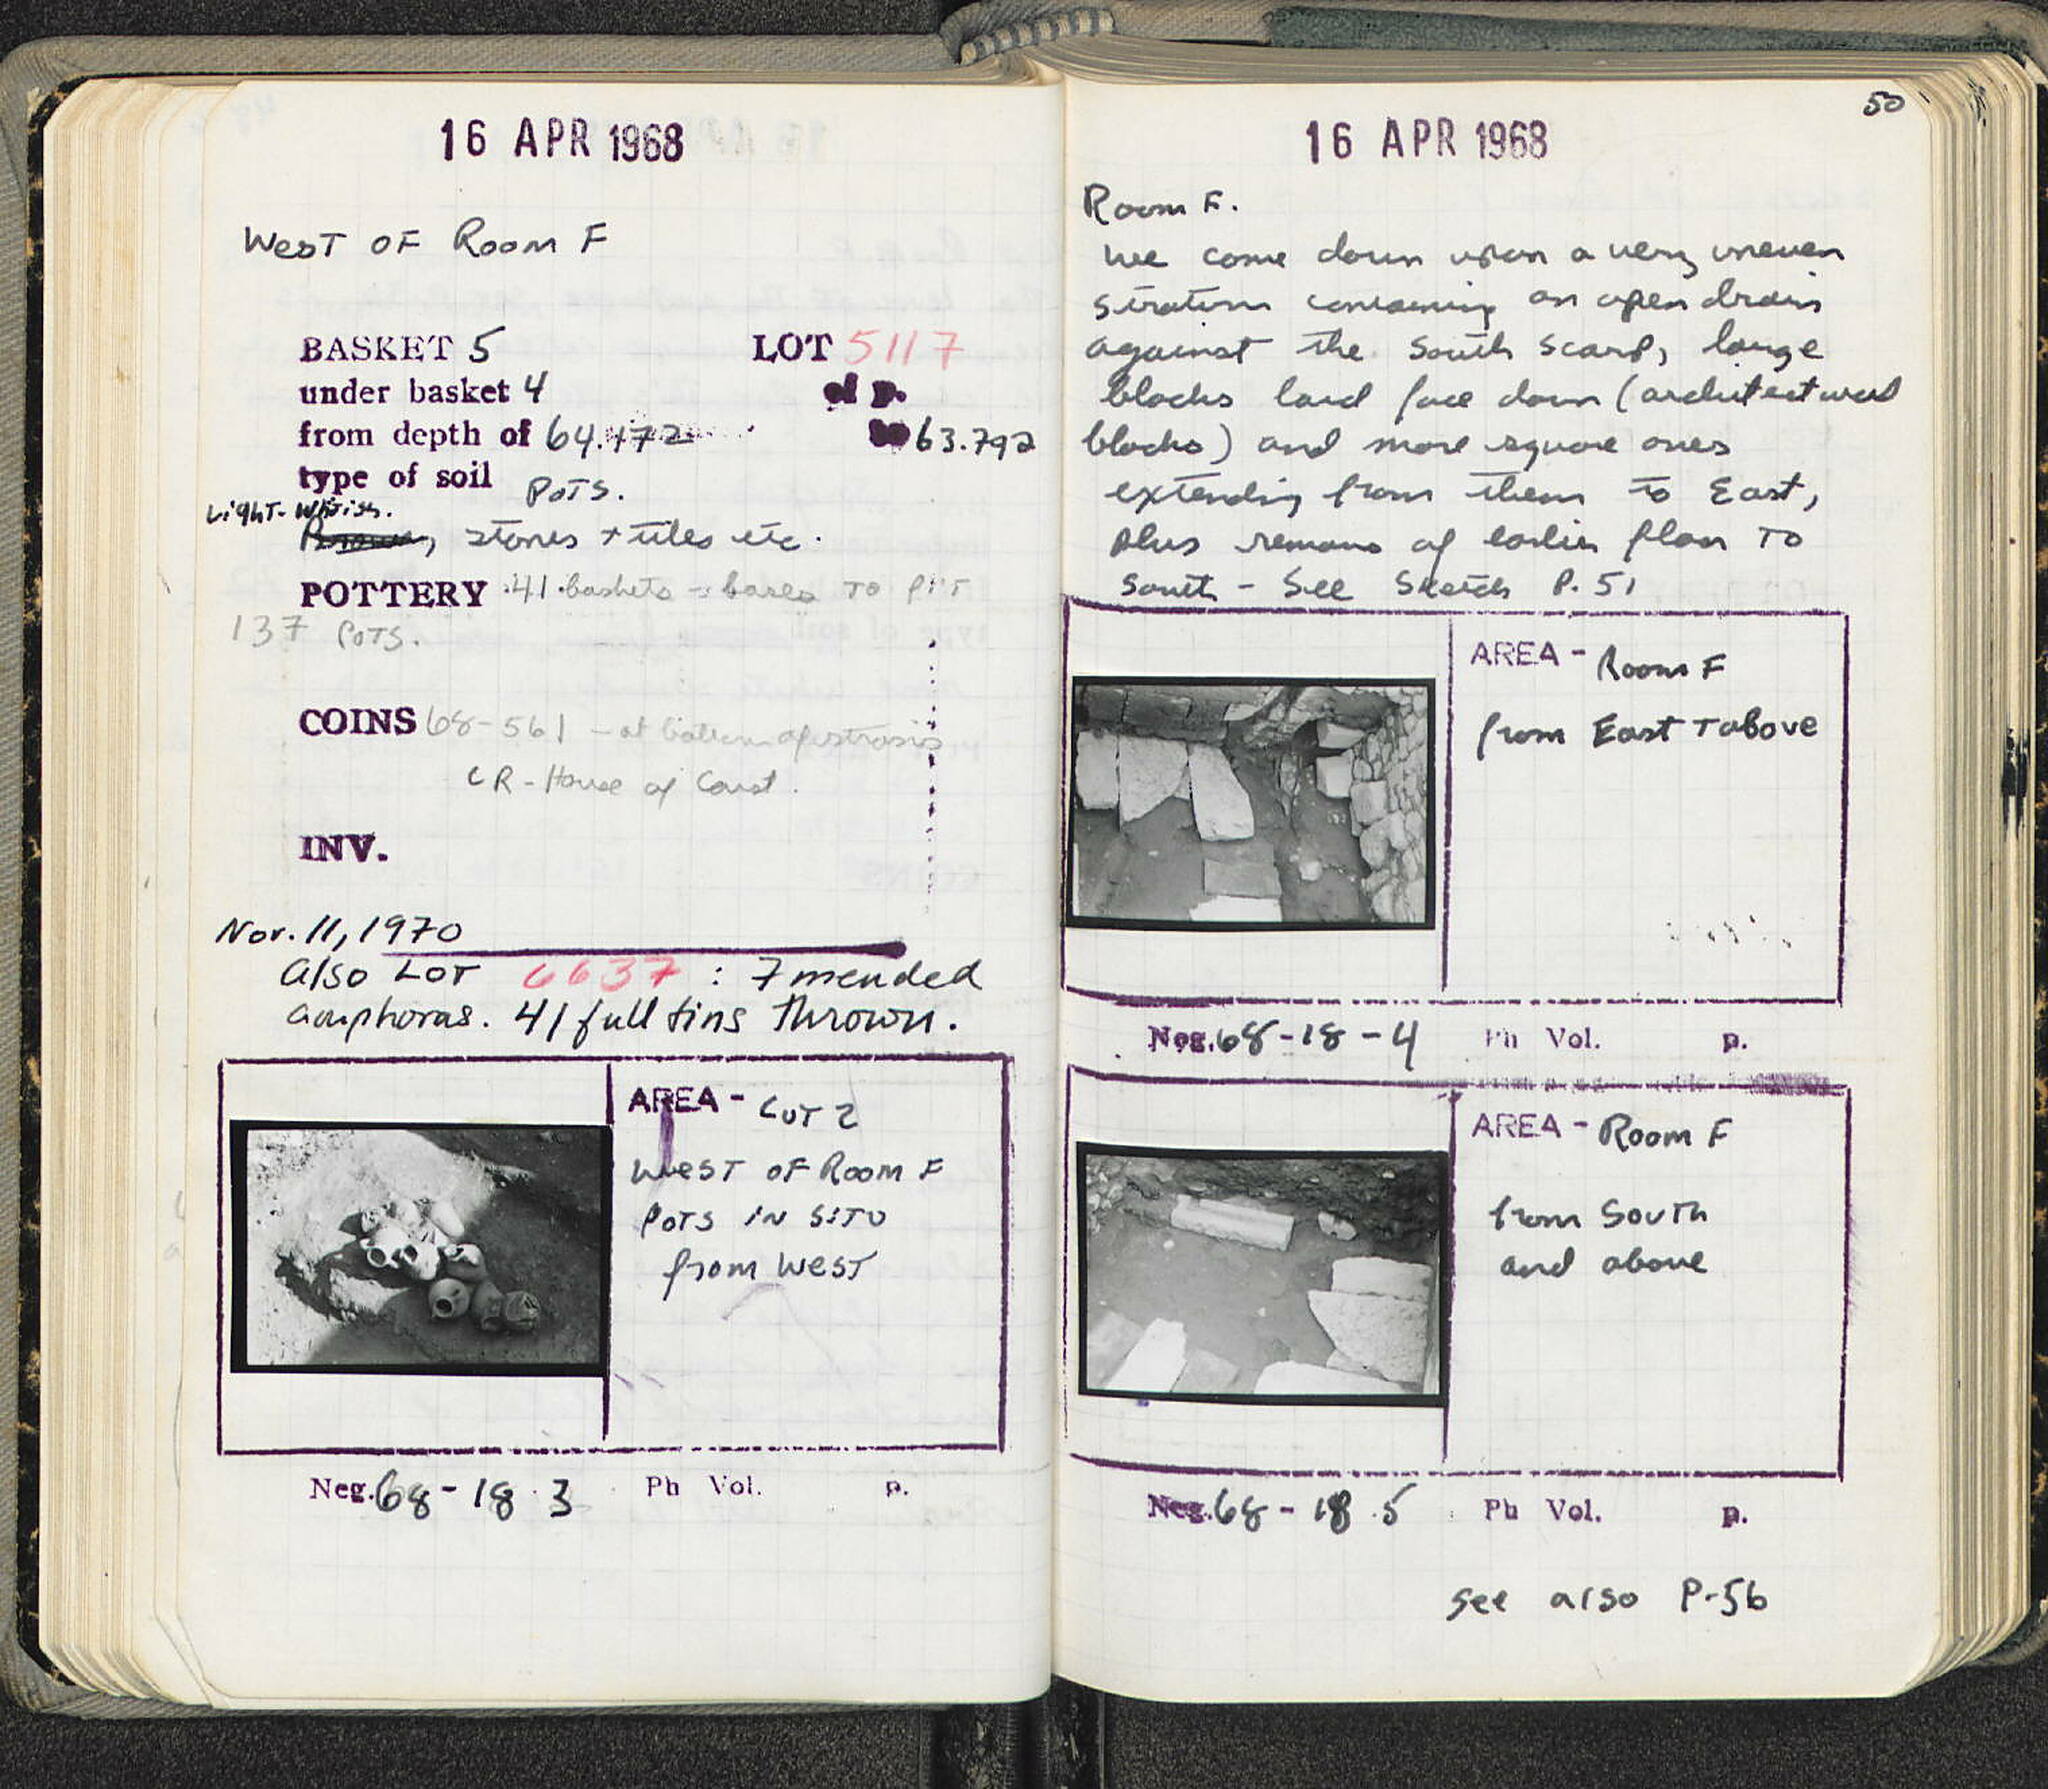 16 APR 1968
West OF Room F
BASKET 5 LOT 5117
under basket 4 of p.
from depth of 64.472 63.792
type of soil POTS.
Light-Whitish.
Brown, stones + tiles etc.
POTTERY 41 baskets - bases TO PIT
137 POTS.
COINS 68-561 - at bottom of
CR - House of Const.
INV.
Nov. 11, 1970
also LOT 6637 : 7 mended
amphoras. 41 full tins thrown.
AREA - CUT 2
West OF Room F
POTS IN SITU
from West
Neg. 68-18-3 Ph Vol. p.
50
16 APR 1968
Room F.
We come down upon a very uneven
stratum containing an open drain
against the South scarp, large
blocks laid face down (architectural
blocks) and more square ones
extending from them to East,
plus remains of earlier floor TO
South - See Sketch P. 51
AREA - Room F
from East + above
Neg. 68-18-4 Ph Vol. p.
AREA - Room F
from South
and above
Neg. 68-18.5 Ph Vol. p.
see also P-56